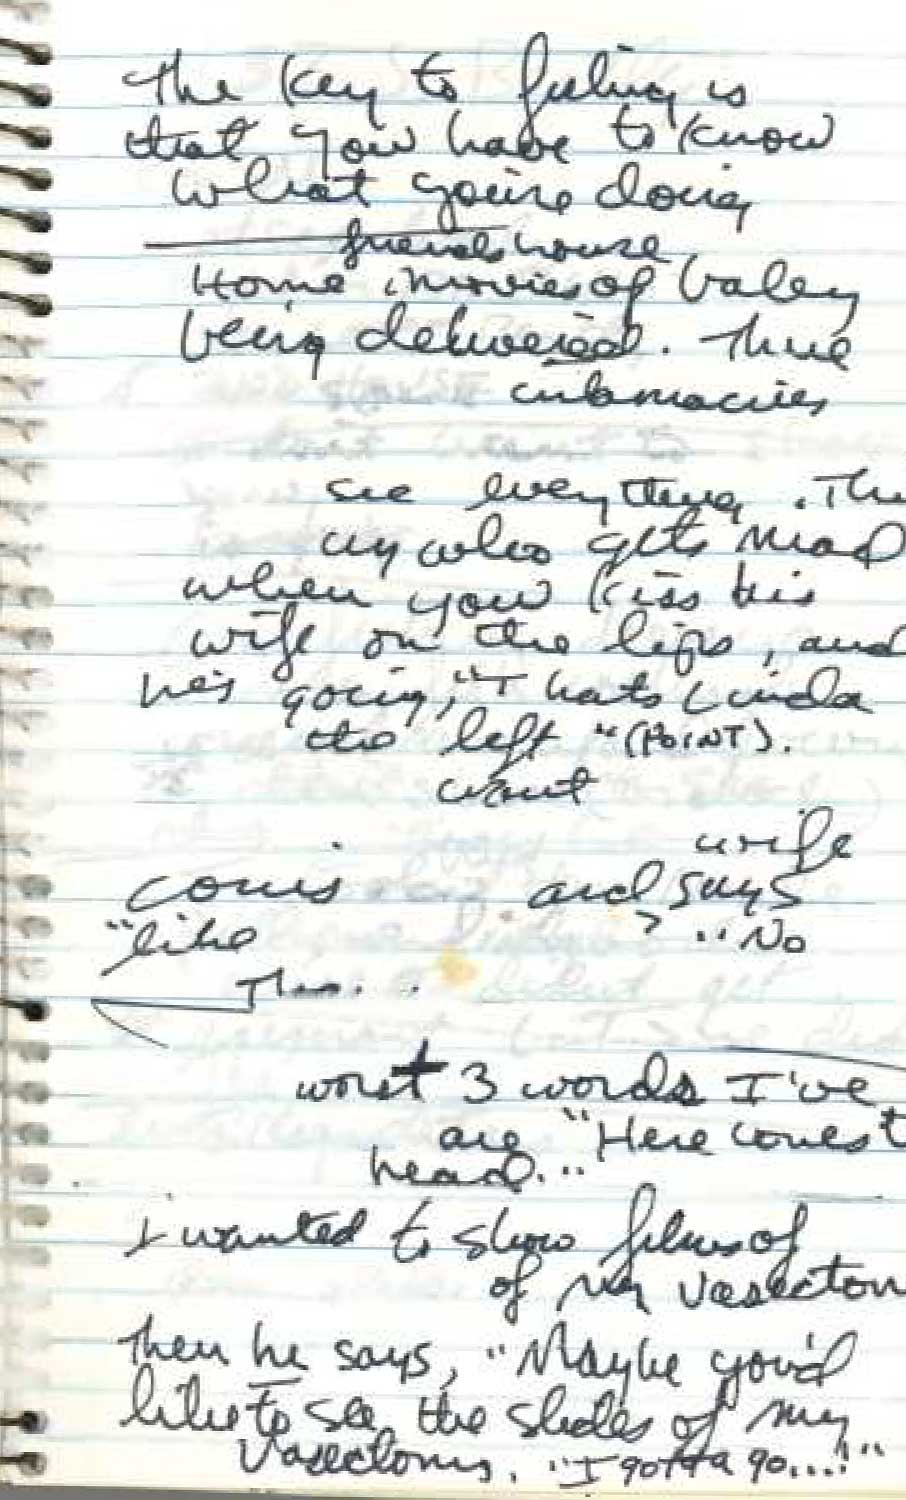 The key to feeling is
that you have to know
what you're doing
friends house
Home movies of baby
being delivered. Three
see everything. The
who gets mad
when you kiss his
wife on the lips, and
he's going, "Thats Linda
the left" (POINT).
want
wife
comes and says
"like "No
This...
worst 3 words I've
are "Here comes t
head..."
I wanted to show films of
of my vasectom
Then he says, "Maybe you'd
like to see the slides of my
vasectomy. "I gotta go....!"